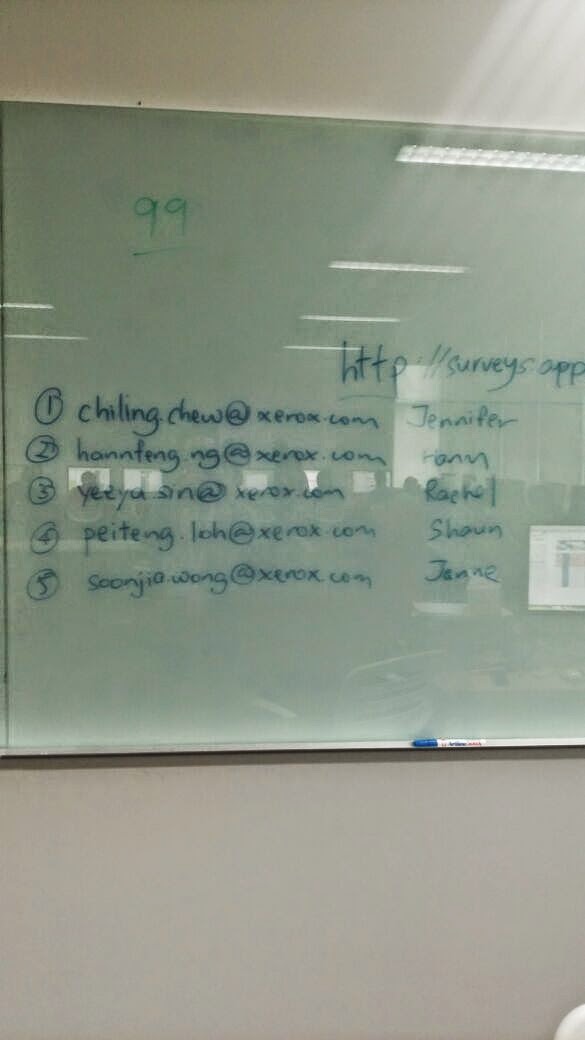 99
http://surveys.app
① chiling.chew@xerox.com Jennifer
② hannfeng.ng@xerox.com Hann
③ yeeya.sin@xerox.com Rachel
④ peiteng.loh@xerox.com Shaun
⑤ soonjia.wong@xerox.com Janne